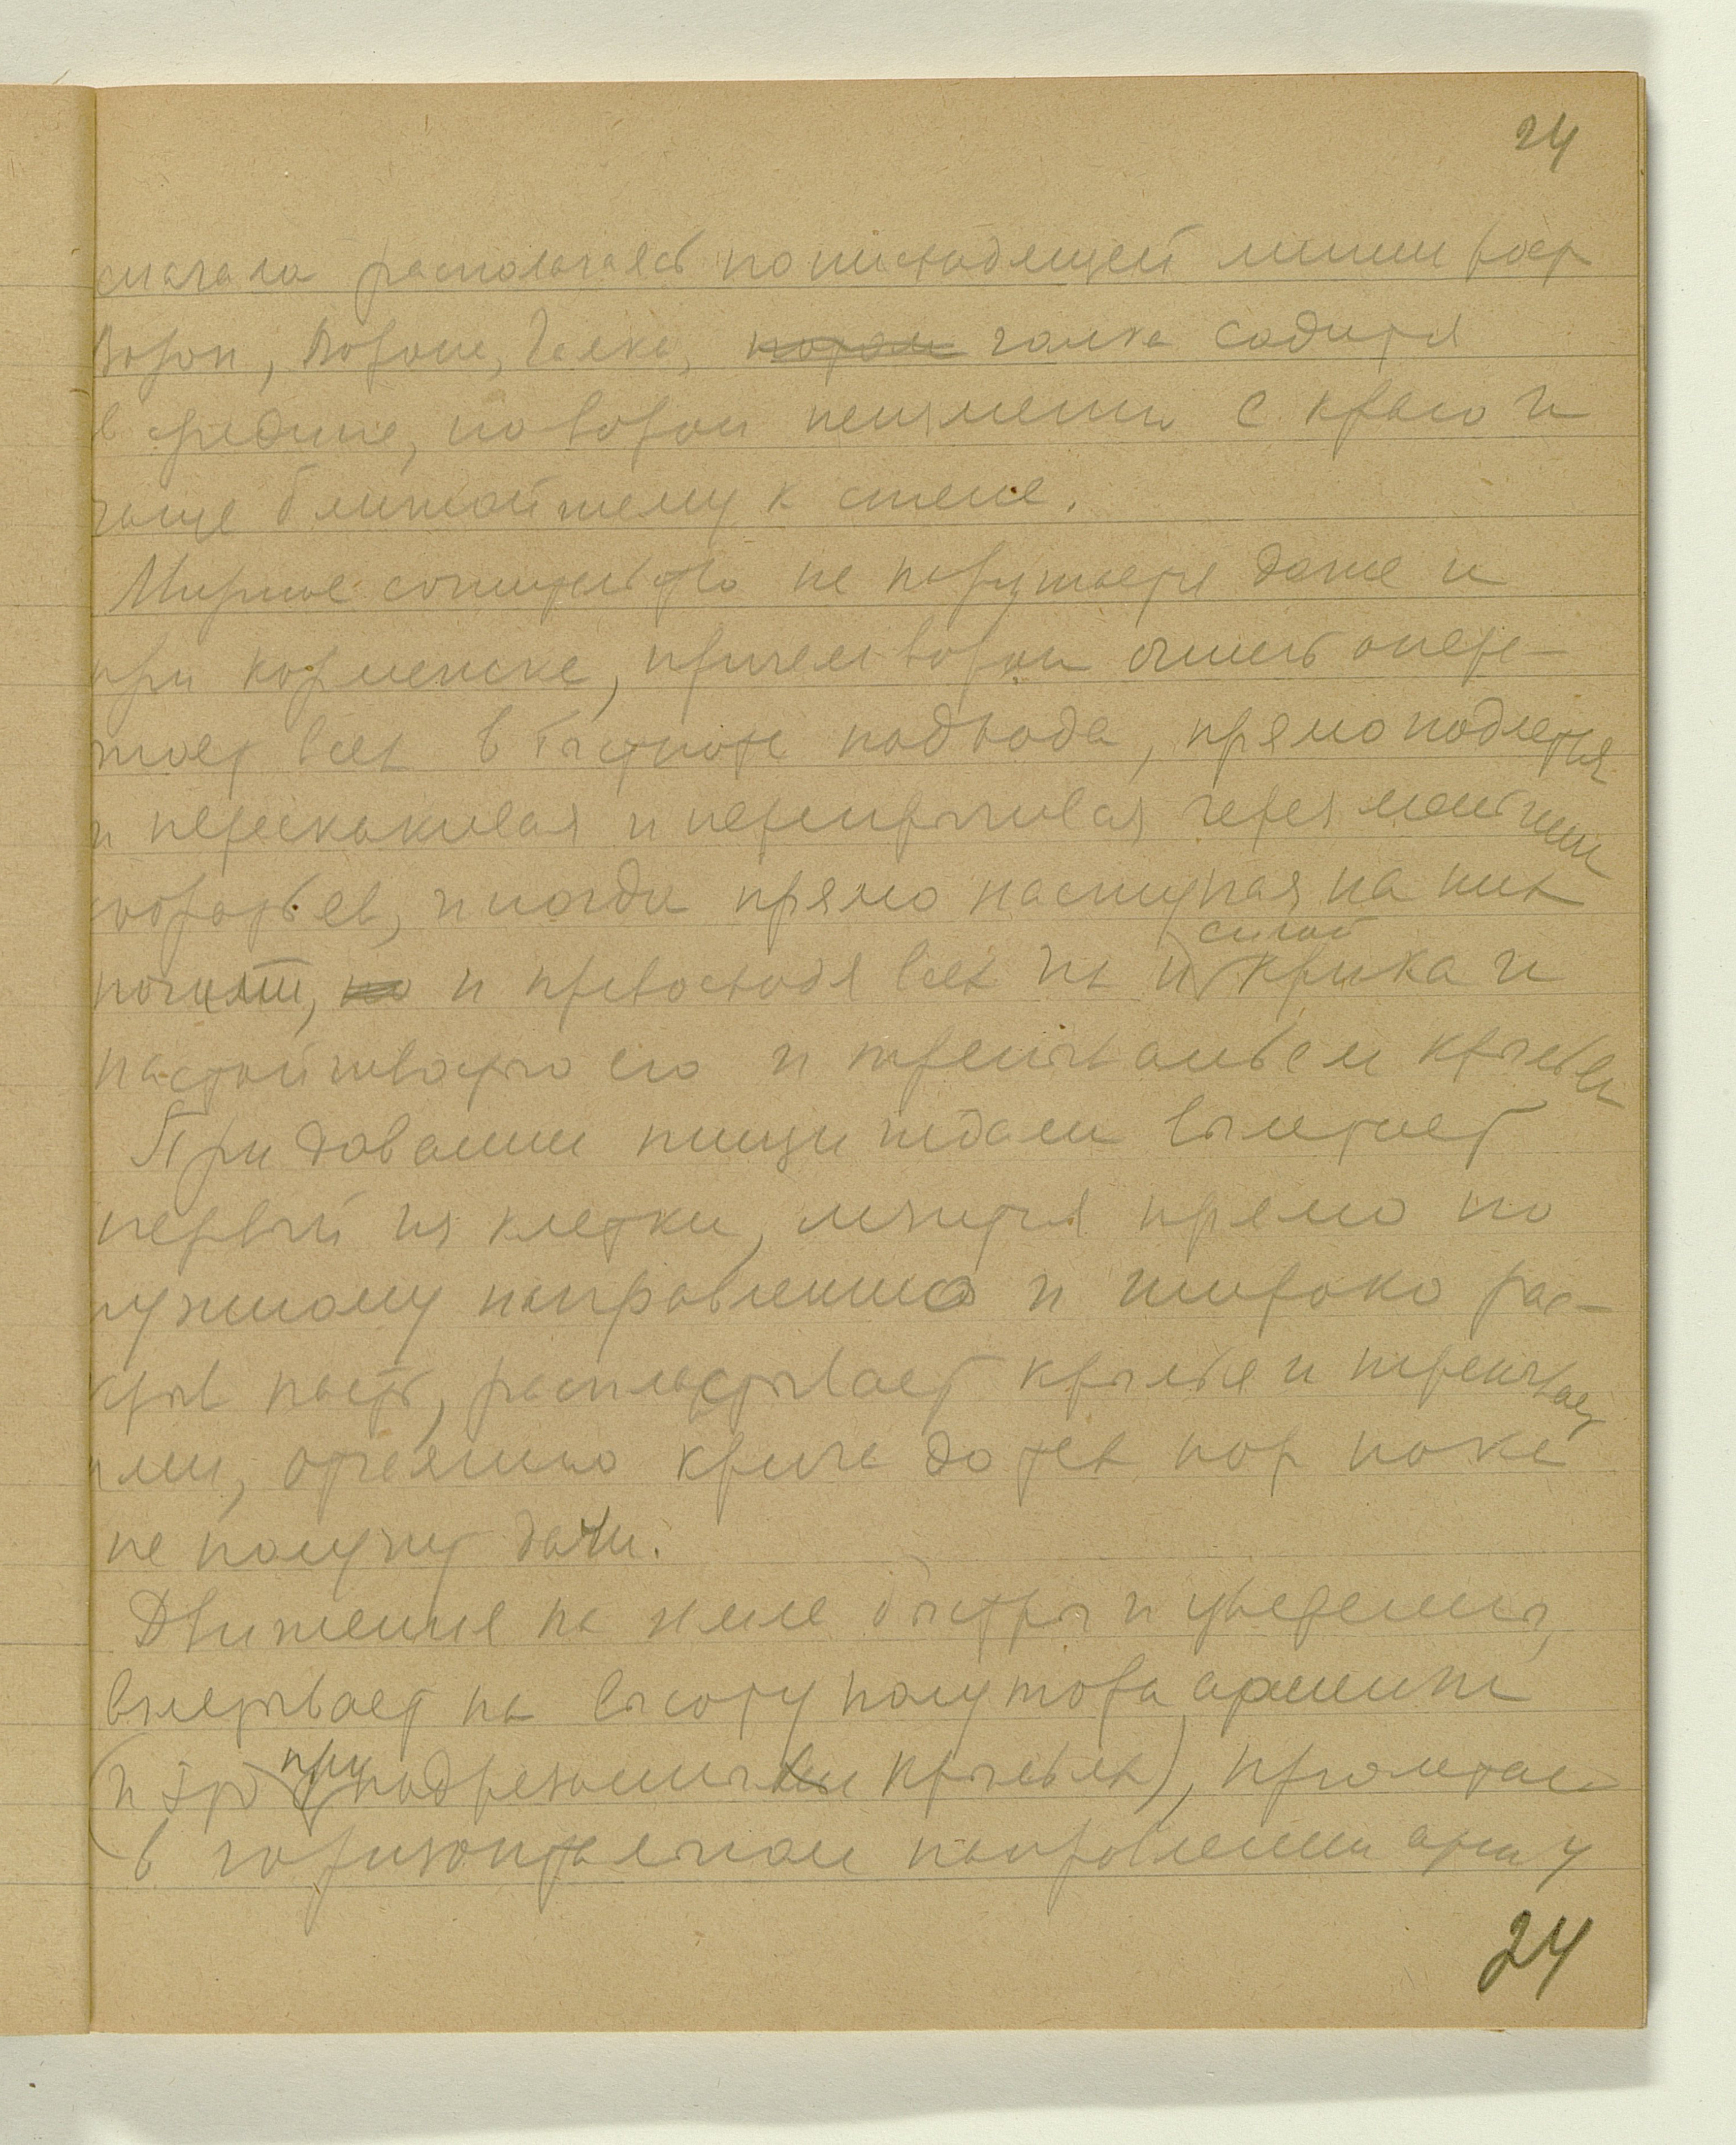 24
сначала располагаясь по нисходящей линии
ворон, ворона, галка, потом галка садится
в средине, но ворон неизменно с краю и
чаще ближайшему к стене.
Мирное сожительство не нарушается даже и
при кормежке, причем ворон опере-
жает всех в быстроте подхода, прямо подлетая
и перескакивая и перепрыгивая через меньших
собратьев, иногда прямо наступая на них
ногами, но и превосходя всех их и силой крика и
настойчивостью его и трепетаньем крыльев
При давании пищи людям вылетает
первый из клетки, мчится прямо по
нужному направлению и широко рас-
крыв пасть, распластывает крылья и трепещет
ими, отчаянно крича до тех пор пока
не получит дачи.
Движения на земле быстры и уверенны,
взлетывает на высоту полутора аршина
(и это при подрезанных крыльях), пролетая
в горизонтальном направлении
24